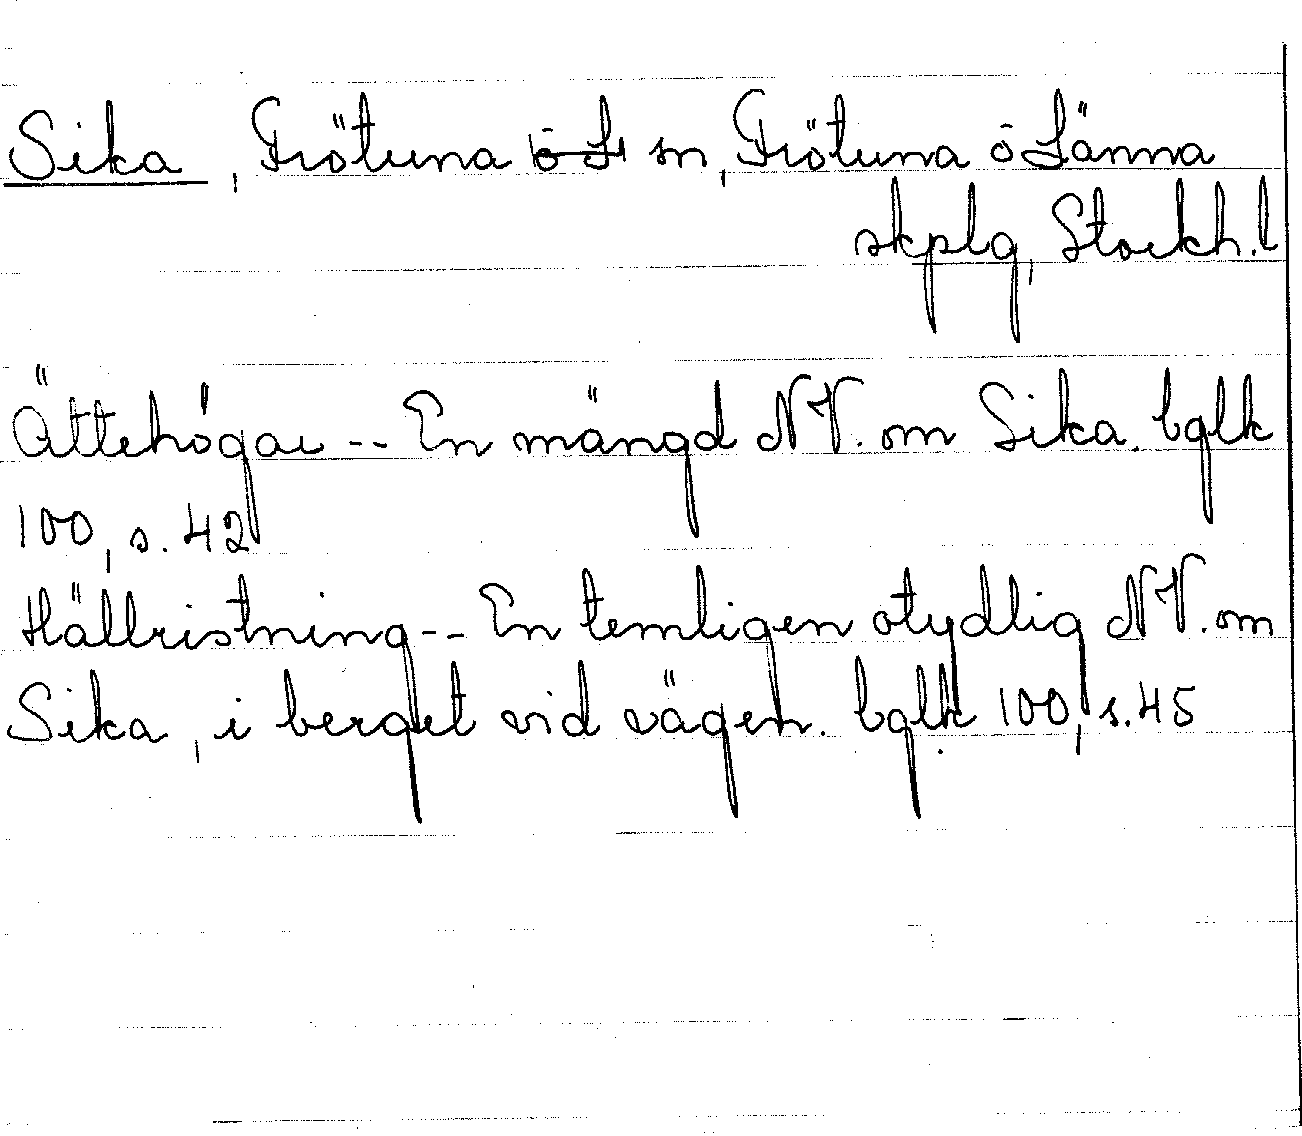 Sika, Frötuna sn, Frötuna ō Länna
skplg, Stockh. l
Ättehögar -- En mängd NV. om Sika. bglk
100, s. 42
Hällristning -- En temligen otydlig NV. om
Sika, i berget vid vägen. bglk 100, s. 45